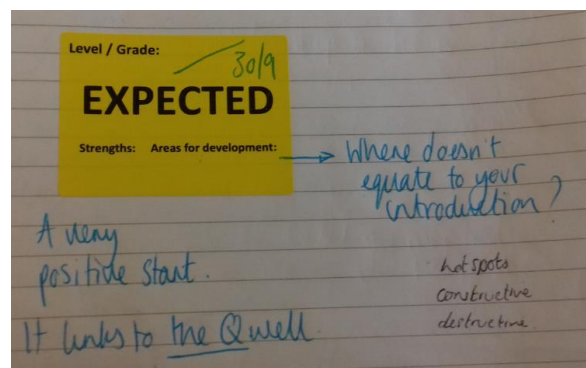 Level / Grade:
30/9
EXPECTED
Strengths: Areas for development:
Where doesn't
equate to your
introduction?
A very
positive start.
It links to the Q well.
hotspots
constructive
destructive